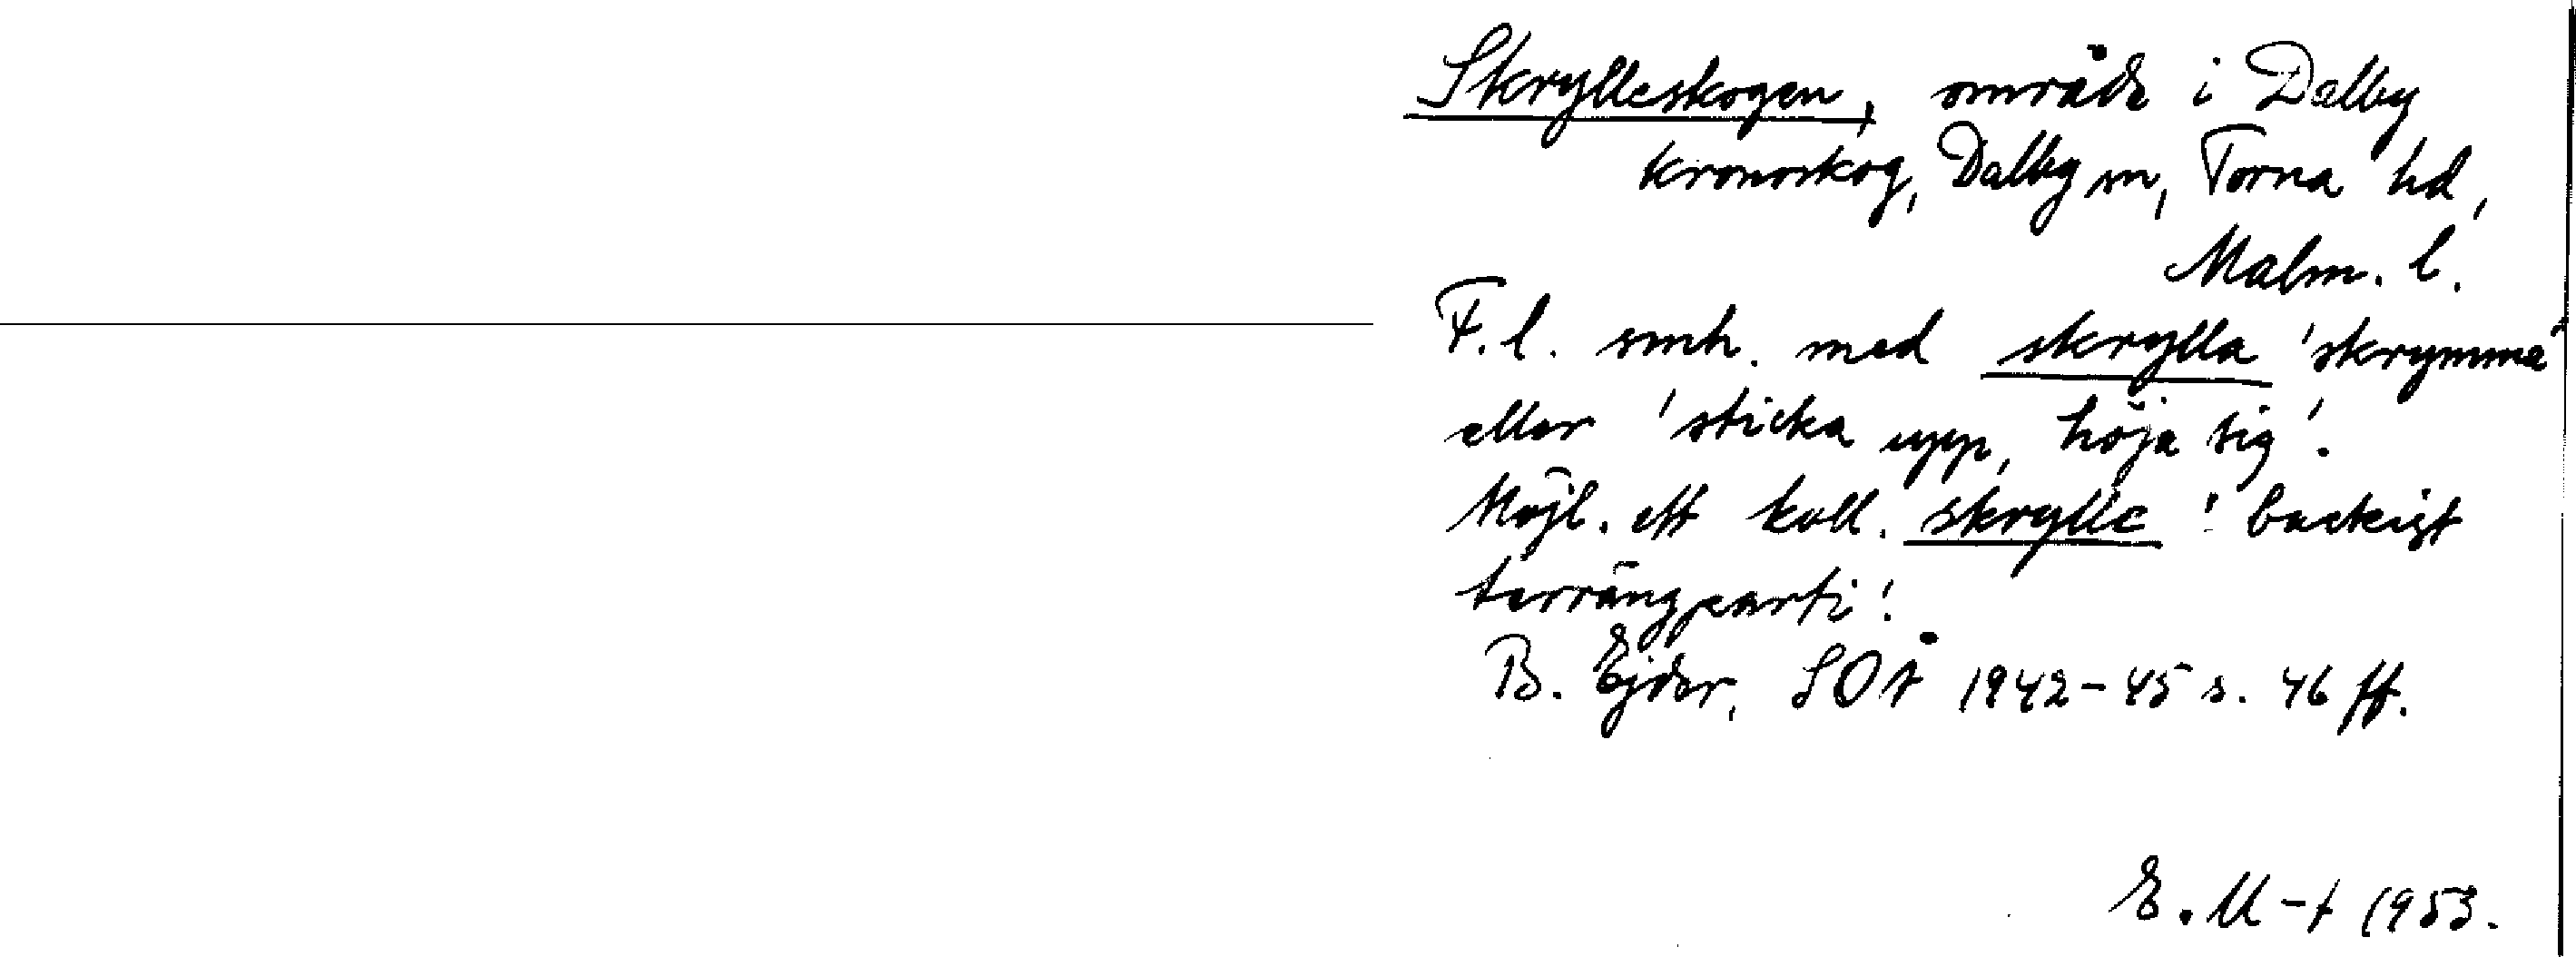 Skrylleskogen, område i Dalby
kronoskog, Dalby sn, Torna hd,
Malm. l.
F.l. smh. med skrylla 'skrymma'
eller 'sticka upp, höja sig'.
Möjl. ett koll. skrylle 'backigt
terrängparti'.
B. Ejder, SOÅ 1942-45 s. 46 ff.
E. M-t 1953.